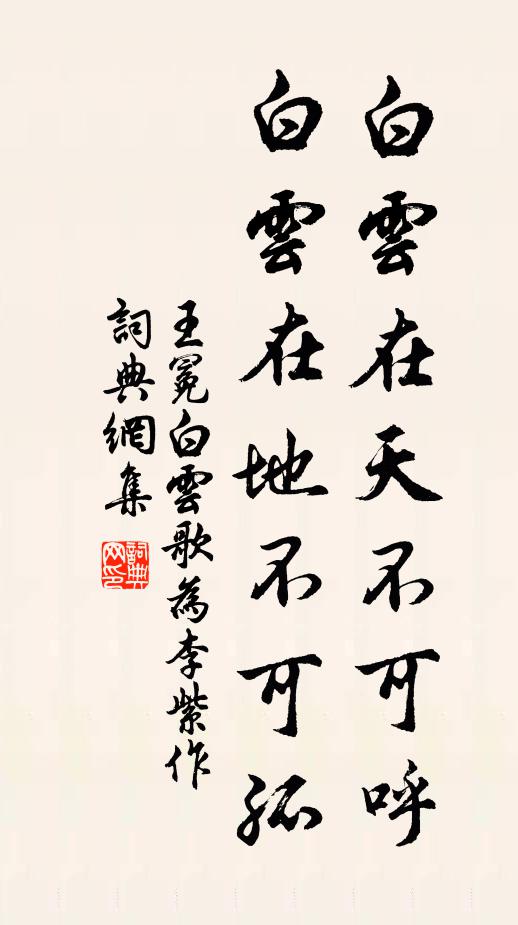 白雲在天不可呼
白雲在地不可孤
王冕白雲歌為李紫作
詞典網集
詞典網印